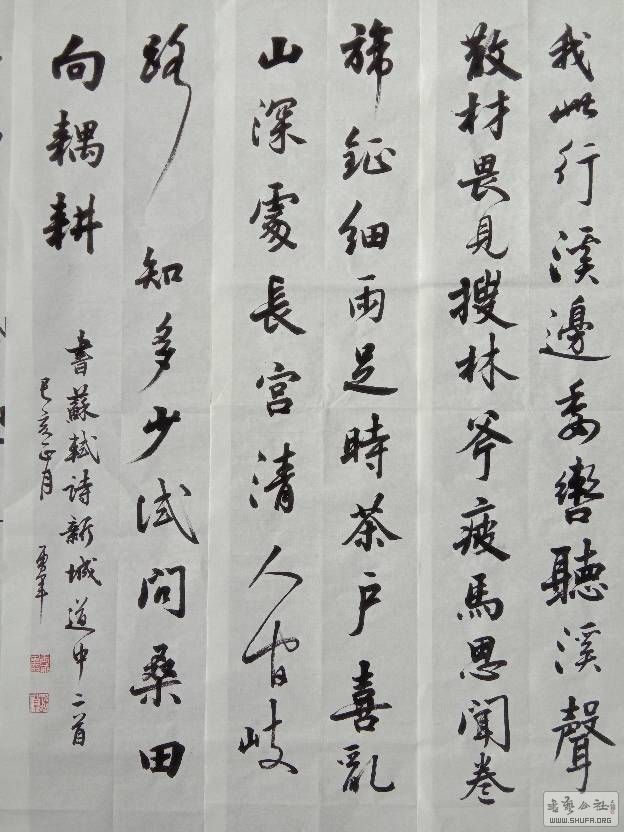 我此行溪邊委轡聽溪聲
散材畏見搜林斧疲馬思聞卷
旆鉦細雨足時茶户喜亂
山深處長宫清人間岐
路知多少試問桑田
向耦耕
書蘇軾詩新城道中二首
己亥正月
書藝公社
WWW.SHUFA.ORG